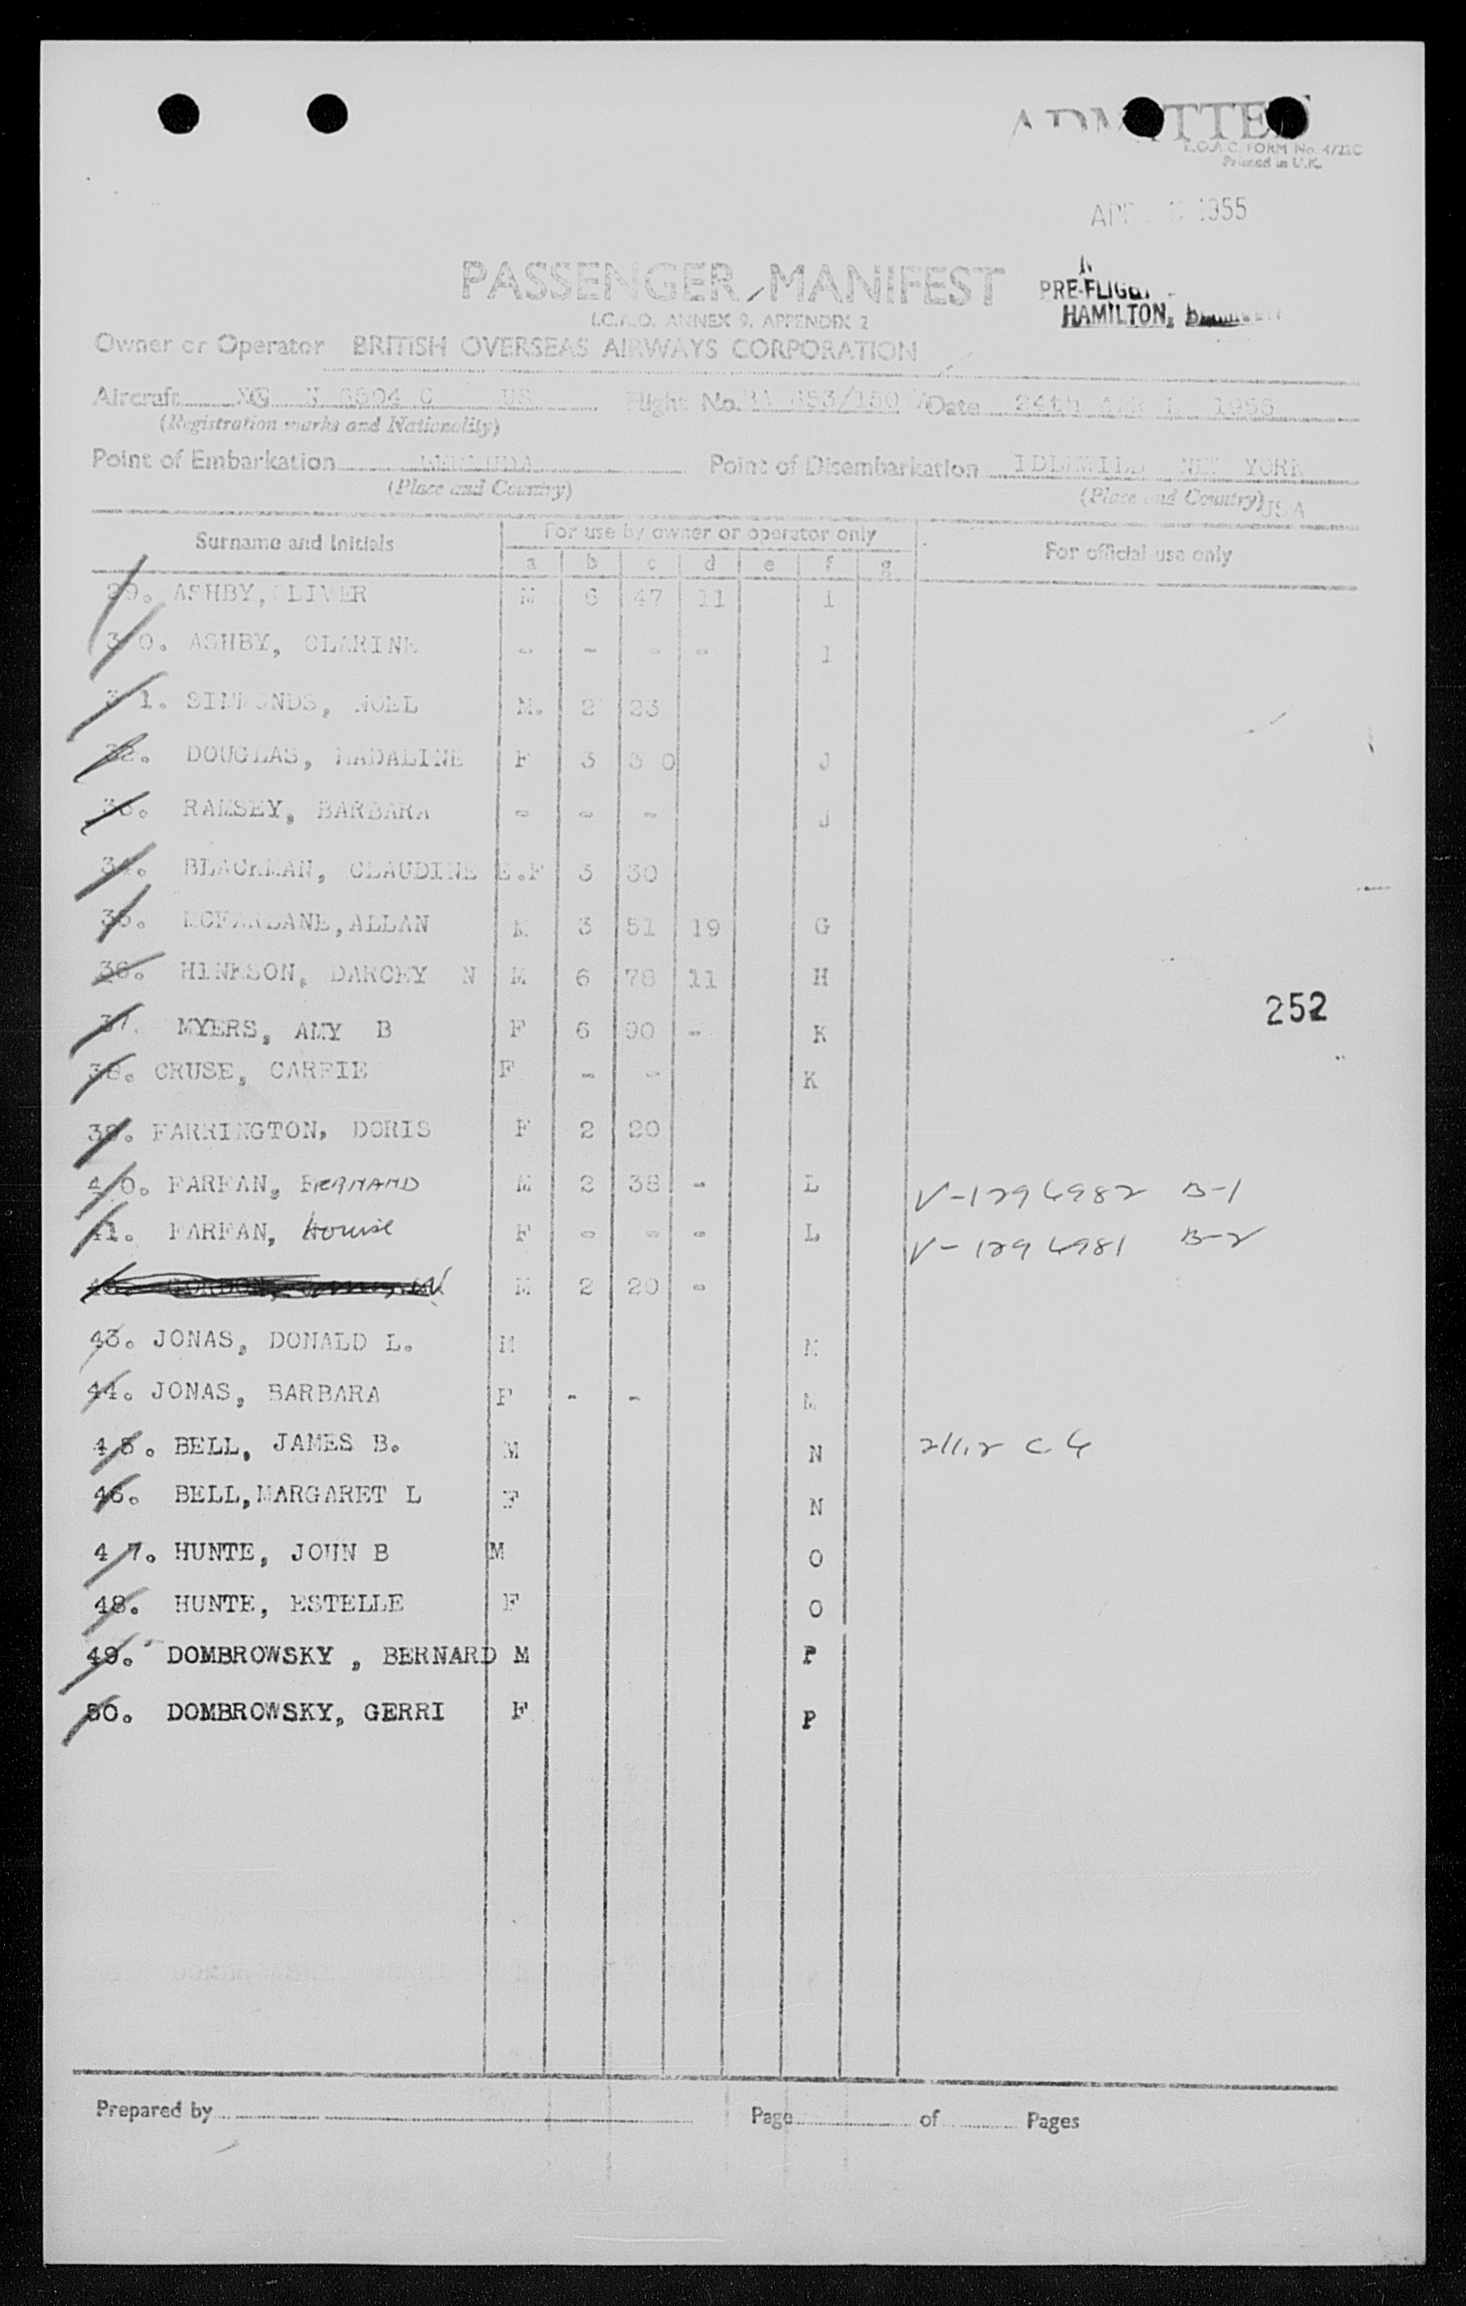 ADMITTED
B.O.A.C. FORM No.
Printed in U.K.
1955
PASSENGER MANIFEST
PRE-FLIGHT
HAMILTON,
I.C.A.O. ANNEX 9, APPENDIX 2
Owner or Operator BRITISH OVERSEAS AIRWAYS CORPORATION
Aircraft US Flight No. Date 24th
(Registration marks and Nationality)
Point of Embarkation BERMUDA Point of Disembarkation IDLEWILD NEW YORK
(Place and Country) (Place and Country) USA
Surname and Initials For use by owner or operator only For official use only
a b c d e f g
29. ASHBY, OLIVER M 6 47 11 I
30. ASHBY, CLARINE - - - - I
31. SIMMONDS, NOEL M. 2 23
32. DOUGLAS, MADALINE F 3 30 J
33. RAMSEY, BARBARA - - - J
34. BLACKMAN, CLAUDINE E.F 3 30
35. MCFARLANE,ALLAN M 3 51 19 G
36. HINKSON, DARCEY N M 6 78 11 H
252
37. MYERS, AMY B F 6 90 - K
38. CRUSE, CARRIE F - - K
39. FARRINGTON, DORIS F 2 20
40. FARFAN, BERNARD M 2 38 - L V-1296982 B-1
41. FARFAN, Louise F - - - L V-1296981 B-2
GORDON, M 2 20 -
43. JONAS, DONALD L. M M
44. JONAS, BARBARA F - - M
45. BELL, JAMES B. M N
46. BELL,MARGARET L F N
47. HUNTE, JOHN B M O
48. HUNTE, ESTELLE F O
49. DOMBROWSKY , BERNARD M P
50. DOMBROWSKY, GERRI F P
Prepared by Page of Pages